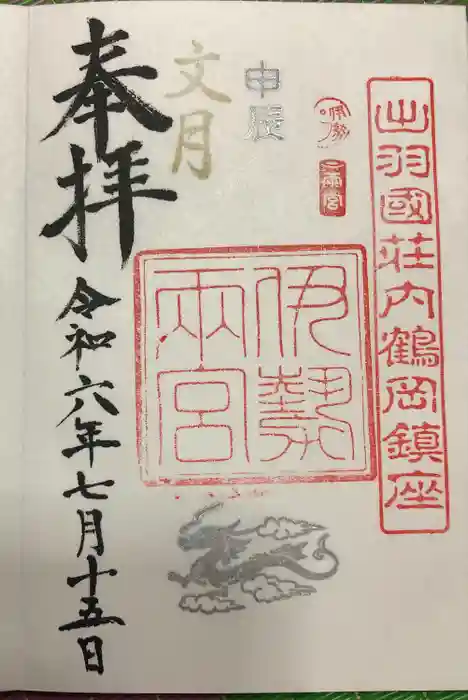 出羽國荘内鶴岡鎮座
伊勢
両宮
申辰
文月
伊勢
兩宮
奉拝
令和六年七月十五日